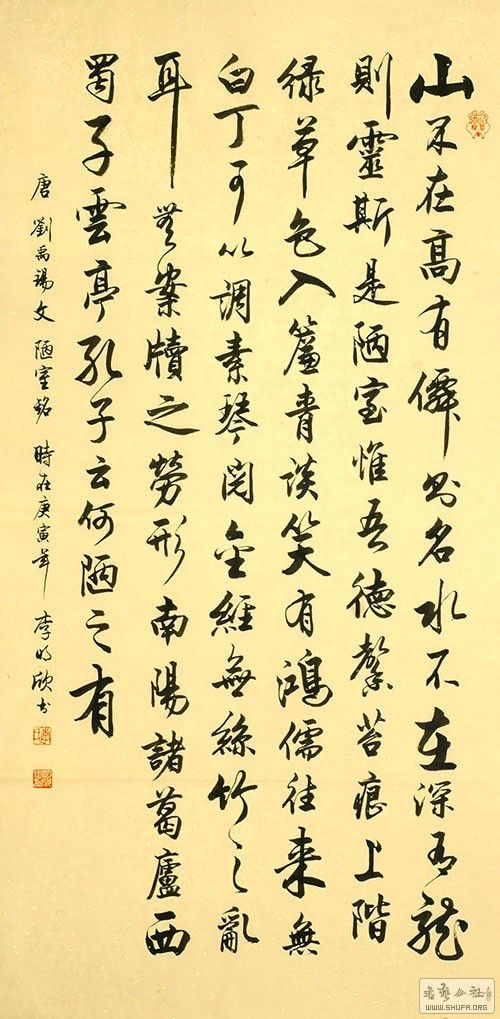 山不在高有僊則名水不在深有龍
則靈斯是陋室惟吾德馨苔痕上階
緑草色入簾青談笑有鴻儒往来無
白丁可以调素琴閲金經無絲竹之亂
耳無案牘之勞形南陽諸葛廬西
蜀子雲亭孔子云何陋之有
唐劉禹錫文陋室銘時在庚寅年李明欣書
書藝公社
WWW.SHUFA.ORG